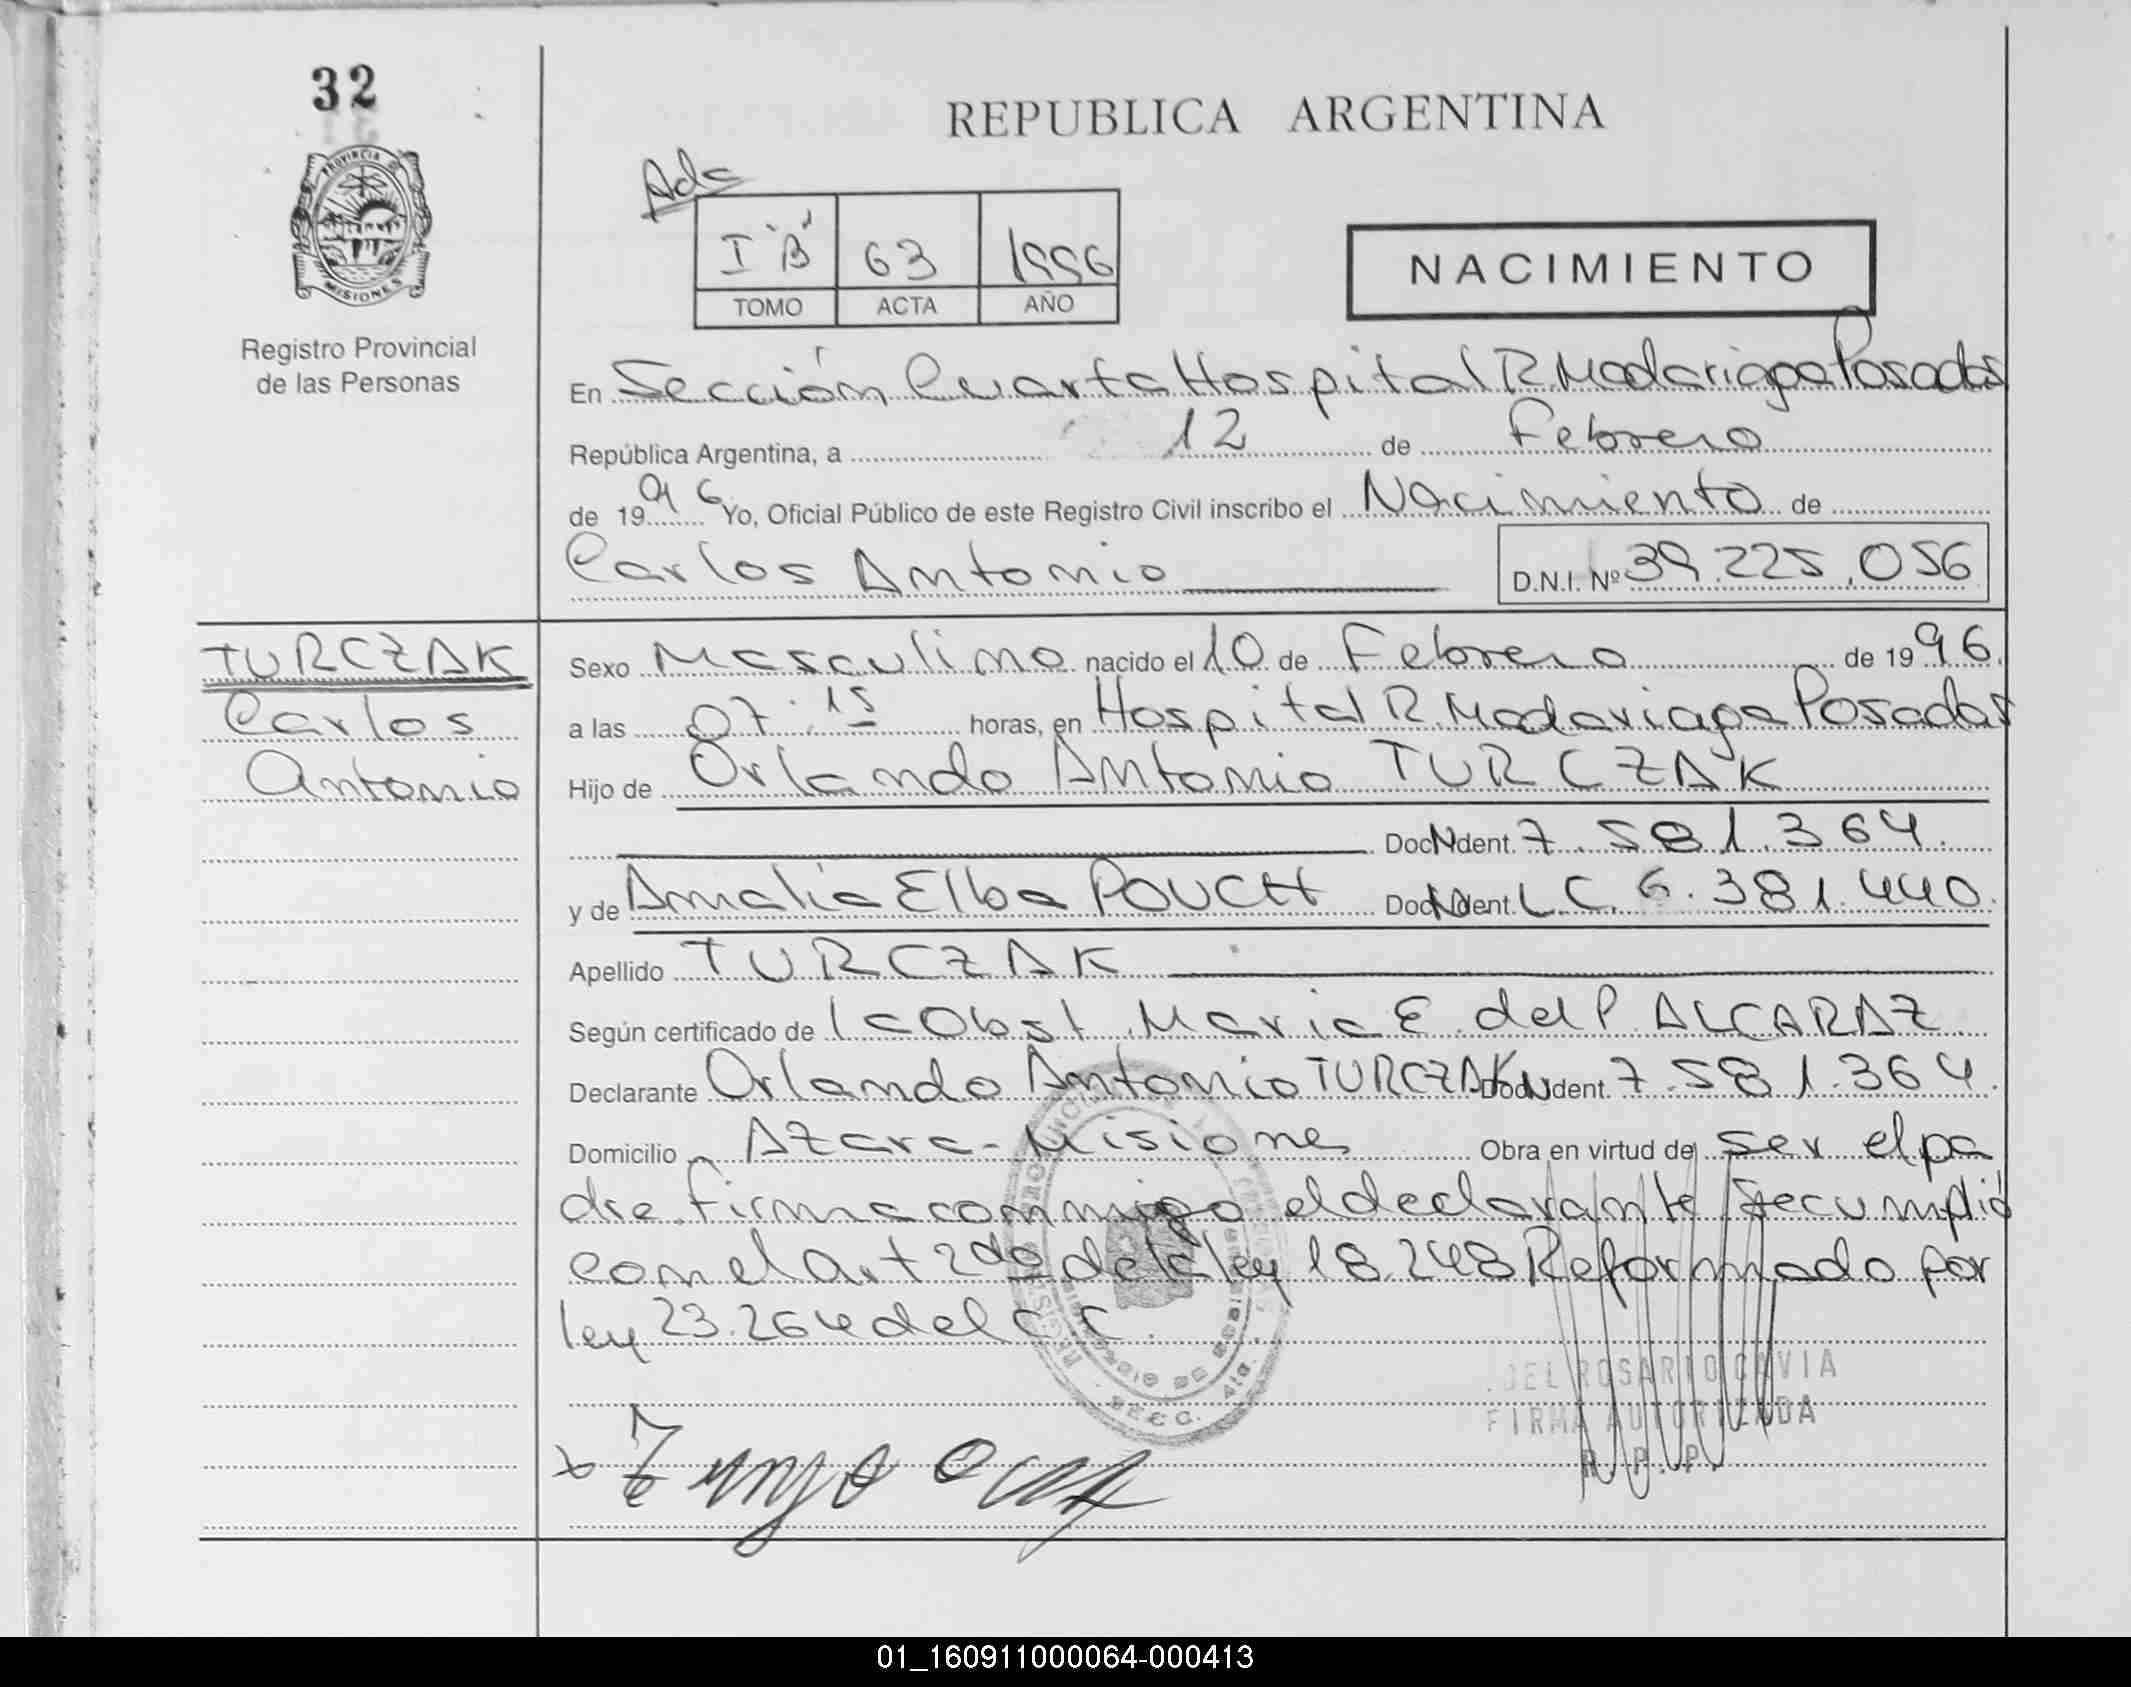 32
REPUBLICA ARGENTINA
PROVINCIA DE
MISIONES
Registro Provincial
de las Personas
Ada
I "B" 63 1996
TOMO ACTA AÑO
NACIMIENTO
En Sección Cuarta Hospital R Madariaga Posadas
República Argentina, a 12 de Febrero
de 1996 Yo, Oficial Público de este Registro Civil inscribo el Nacimiento de
Carlos Antonio D.N.I. Nº 39.225.056
TURCZAK
Carlos
Antonio
Sexo Masculino nacido el 10 de Febrero de 1996.
a las 07:15 horas, en Hospital R. Madariaga Posadas
Hijo de Orlando Antonio TURCZAK
Doc. Ident. 7.581.364.
y de Amalia Elba POUCH Doc. Ident. LC. 6.381.440.
Apellido TURCZAK
Según certificado de la Obst Maria E del P ALCARAZ
Declarante Orlando Antonio TURCZAK Doc. Ident. 7.581.364.
Domicilio Azara-Misiones Obra en virtud de ser el pa
dre. firma conmigo el declarante se cumplió
con el Art 2do de la ley 18.248 Reformado por
ley 23.264 del C C.
DEL ROSARIO GAVIA
FIRMA AUTORIZADA
R.P.P.
01_160911000064-000413